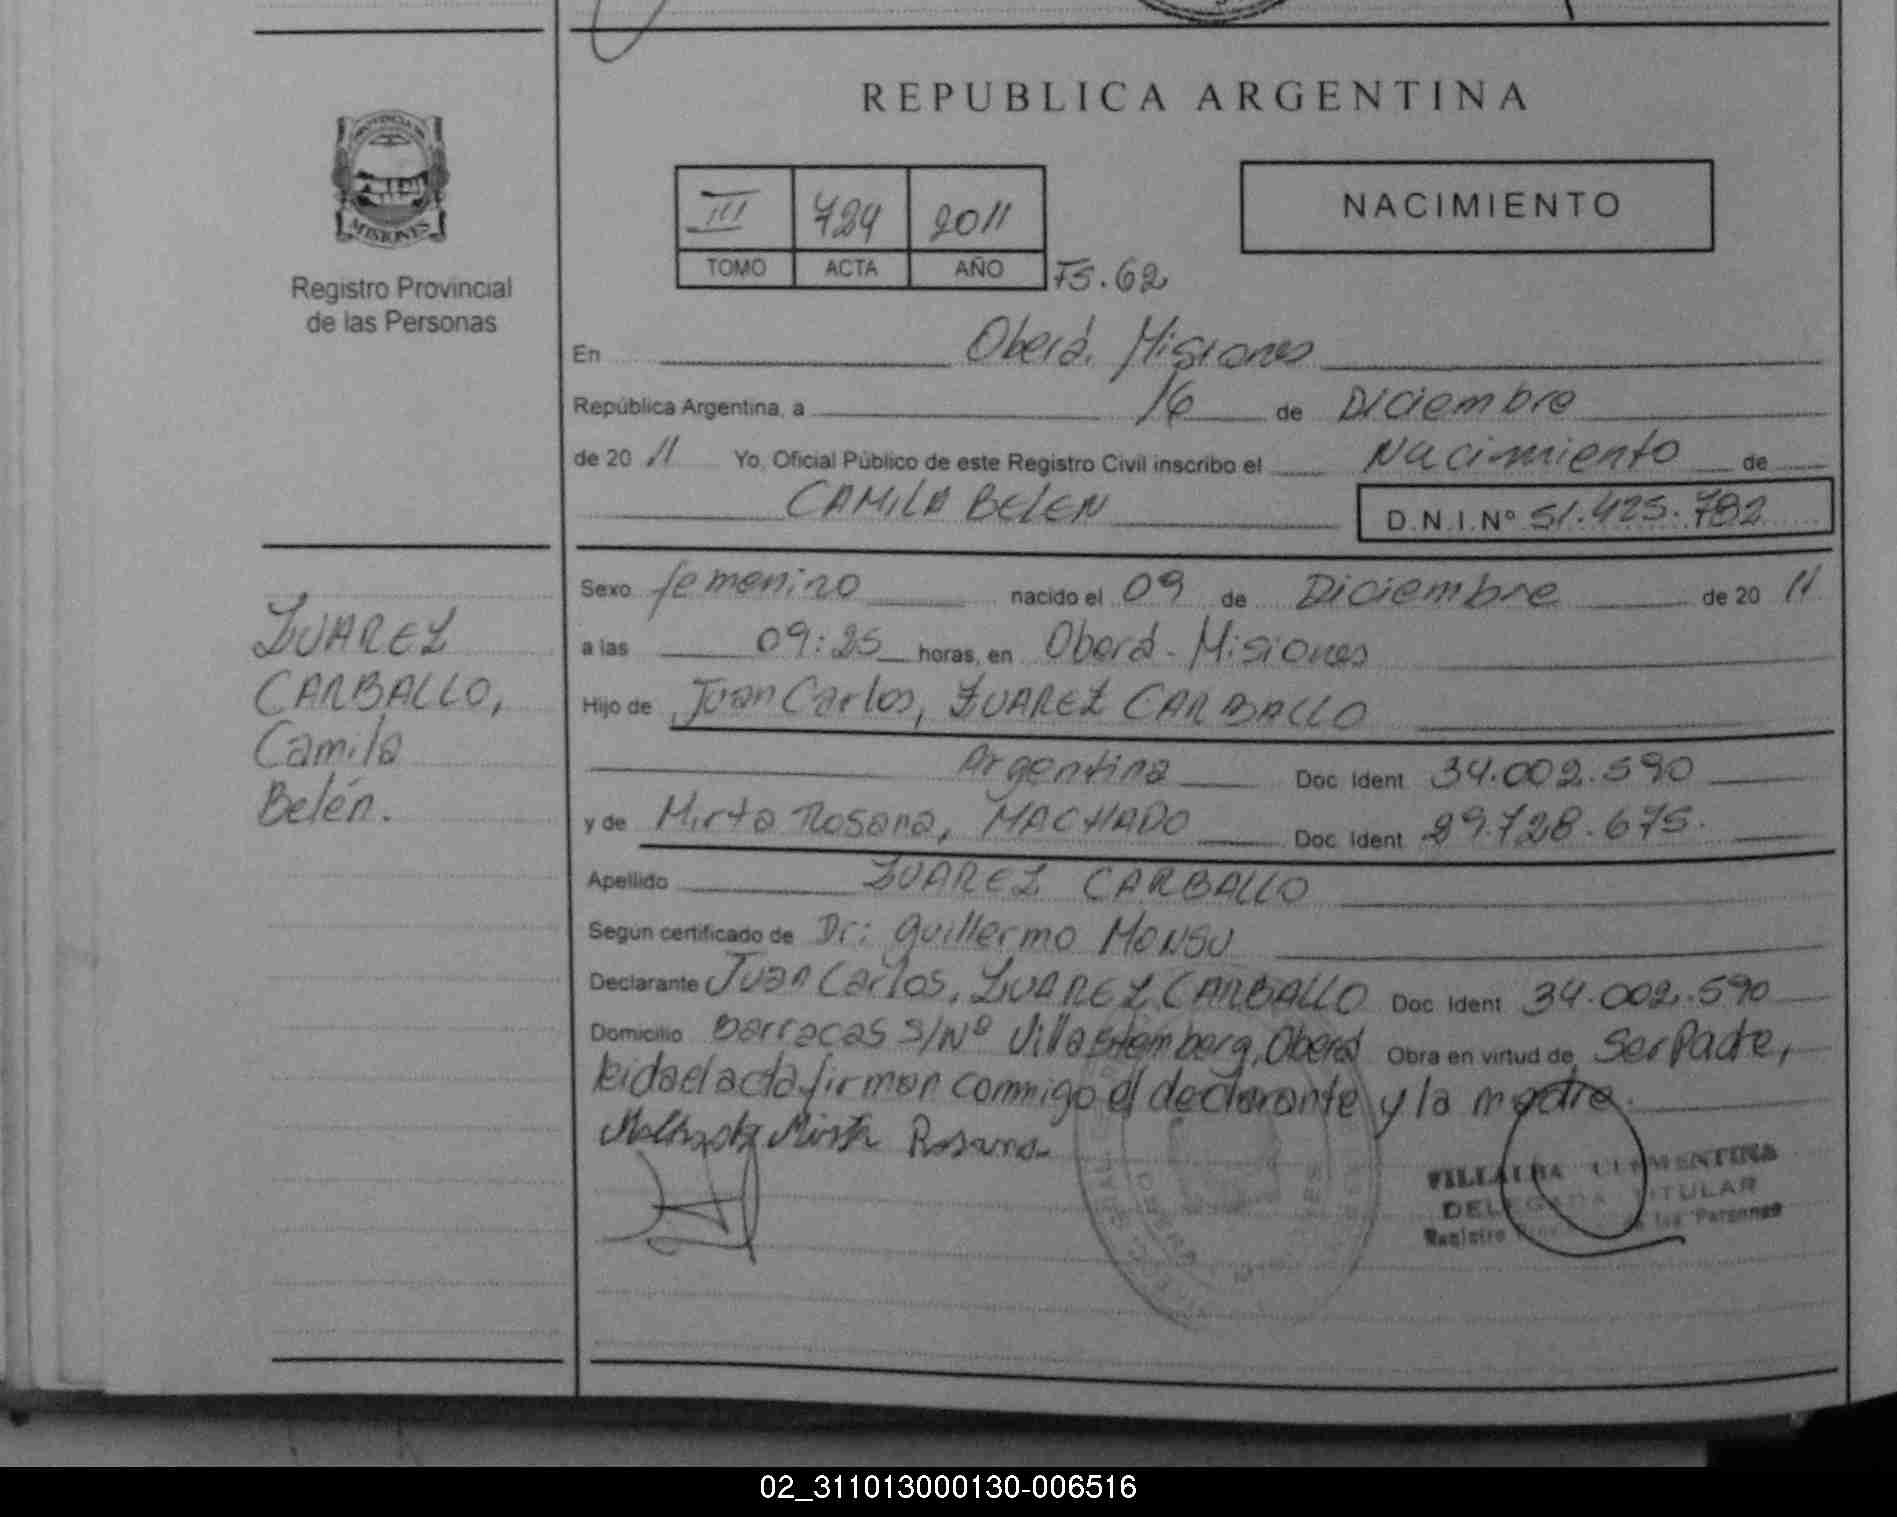 REPUBLICA ARGENTINA
MISIONES
Registro Provincial
de las Personas
III 724 2011
TOMO ACTA AÑO
Fs. 62
NACIMIENTO
En Oberá. Misiones
República Argentina, a 16 de Diciembre
de 2011 Yo, Oficial Público de este Registro Civil inscribo el Nacimiento de
CAMILA BELEN D.N.I.Nº 51.425.782
Sexo femenino nacido el 09 de Diciembre de 2011
a las 09:25 horas, en Oberá - Misiones
Hijo de Juan Carlos, ZUAREZ CARBALLO
Argentina Doc Ident 34.002.590
y de Mirta Rosana, MACHADO Doc Ident 29.728.675.
Apellido ZUAREZ CARBALLO
Según certificado de Dr: Guillermo MONSU
Declarante Juan Carlos, ZUAREZ CARBALLO Doc Ident 34.002.590
Domicilio Barracas S/Nº Villa Oberá Obra en virtud de Ser Padre,
leida el acta firman conmigo el declarante y la madre.
Mirta Rosana
ZUAREZ
CARBALLO,
Camila
Belén.
VILLALBA CLEMENTINA
DELEGADA TITULAR
Registro las Personas
02_311013000130-006516